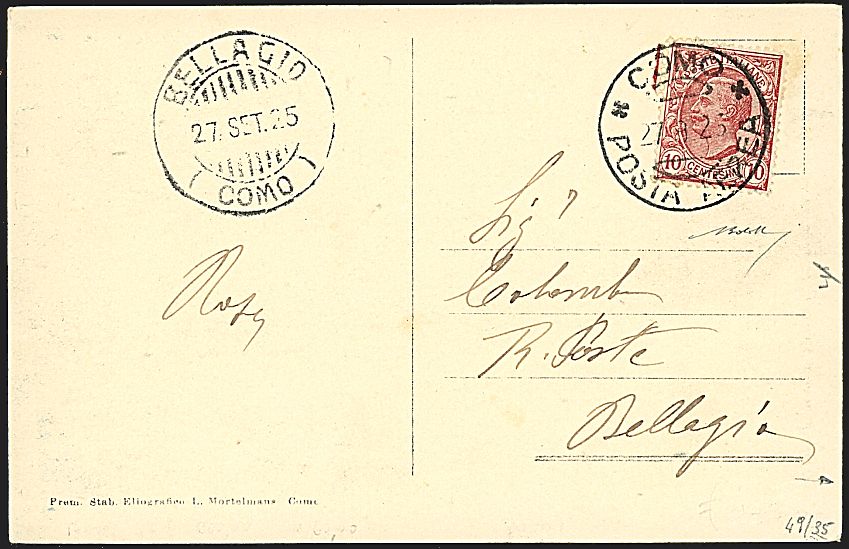 BELLAGIO
27. SET. 25
(COMO)
COMO
POSTA AEREA
POSTE ITALIANE
10 CENTESIMI 10
Sig.
Colomb
R. Poste
Bellagio
Prem. Stab. Eliografico L. Mortelmans Como
49/35